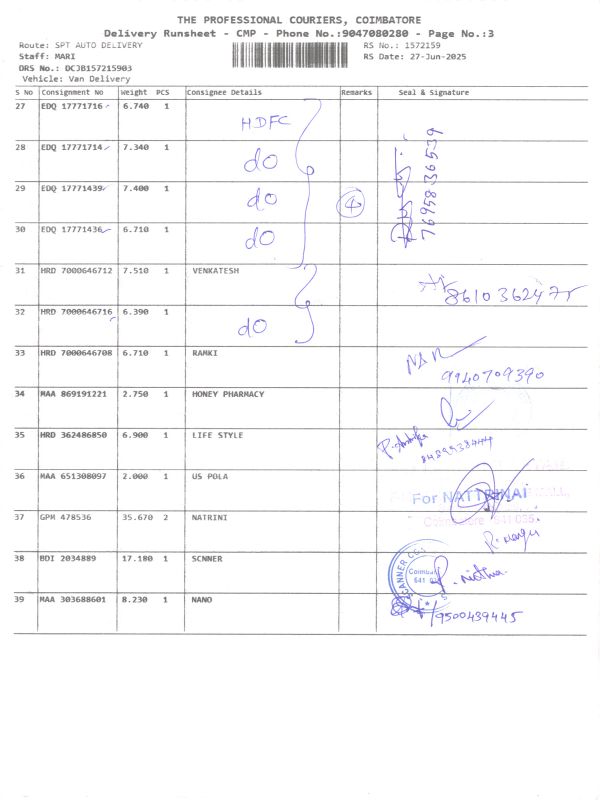 THE PROFESSIONAL COURIERS, COIMBATORE
Delivery Runsheet - CMP - Phone No.:9047080280 - Page No.:3
Route: SPT AUTO DELIVERY RS No.: 1572159
Staff: MARI RS Date: 27-Jun-2025
DRS No.: DCJB157215903
Vehicle: Van Delivery
S No Consignment No Weight PCS Consignee Details Remarks Seal & Signature
27 EDQ 17771716 6.740 1 HDFC
28 EDQ 17771714 7.340 1 do
29 EDQ 17771439 7.400 1 do 4
30 EDQ 17771436 6.710 1 do
7695836539
31 HRD 7000646712 7.510 1 VENKATESH
8610362475
32 HRD 7000646716 6.390 1 do
33 HRD 7000646708 6.710 1 RAMKI
9940709390
34 MAA 869191221 2.750 1 HONEY PHARMACY
35 HRD 362486850 6.900 1 LIFE STYLE
8489538444
36 MAA 651308097 2.000 1 US POLA
For NATTRINAI
37 GPM 478536 35.670 2 NATRINI
Coimbatore 641 035
38 BDI 2034889 17.180 1 SCNNER
39 MAA 303688601 8.230 1 NANO
9500439445